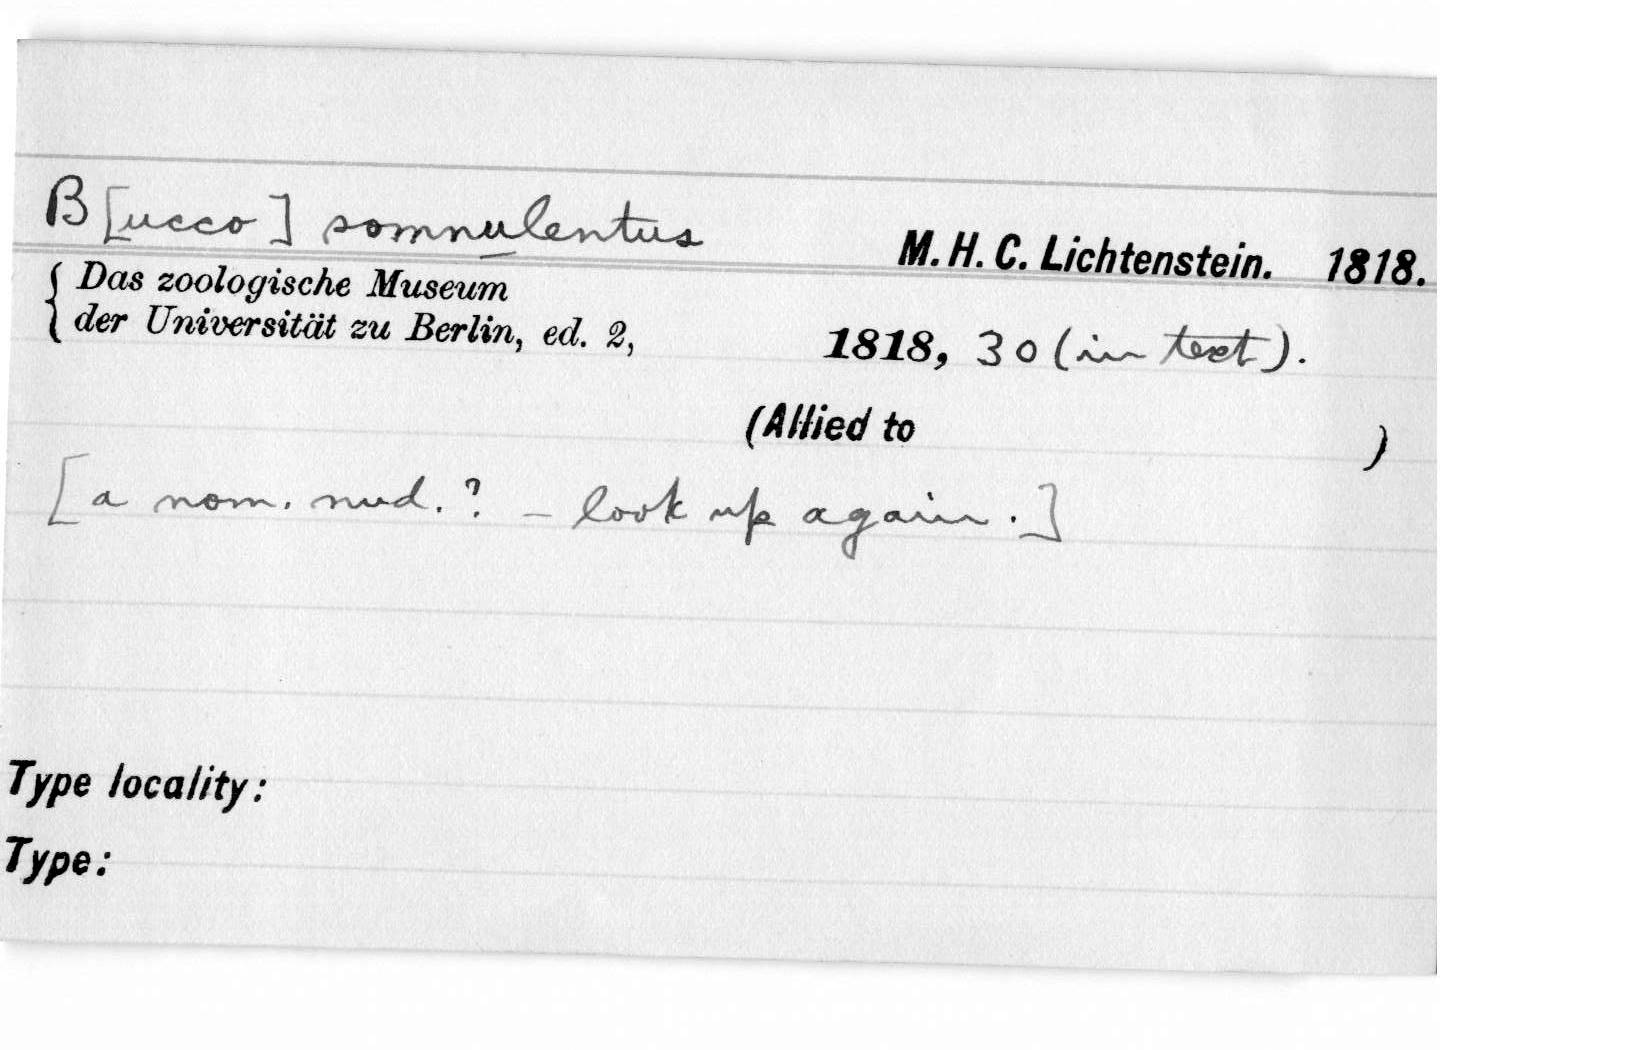 B[ucco] somnulentus M. H. C. Lichtenstein. 1818.
{ Das zoologische Museum
der Universität zu Berlin, ed. 2, 1818, 30 (in text).
(Allied to )
[a nom. nud.? – look up again.]
Type locality:
Type: